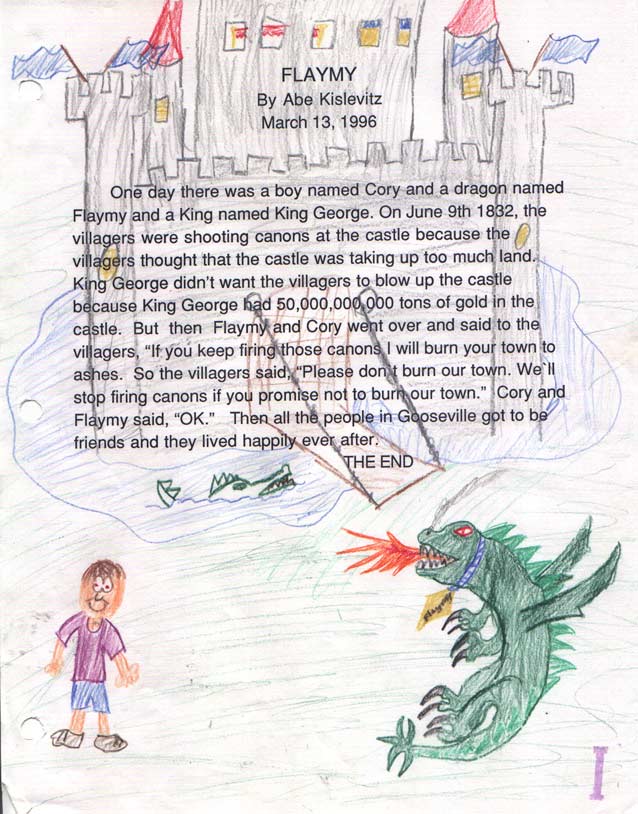 FLAYMY
By Abe Kislevitz
March 13, 1996
One day there was a boy named Cory and a dragon named
Flaymy and a King named King George. On June 9th 1832, the
villagers were shooting canons at the castle because the
villagers thought that the castle was taking up too much land.
King George didn't want the villagers to blow up the castle
because King George had 50,000,000,000 tons of gold in the
castle. But then Flaymy and Cory went over and said to the
villagers, “If you keep firing those canons I will burn your town to
ashes. So the villagers said, “Please don't burn our town. We`ll
stop firing canons if you promise not to burn our town.” Cory and
Flaymy said, “OK.” Then all the people in Gooseville got to be
friends and they lived happily ever after.
THE END
Flaymy
I